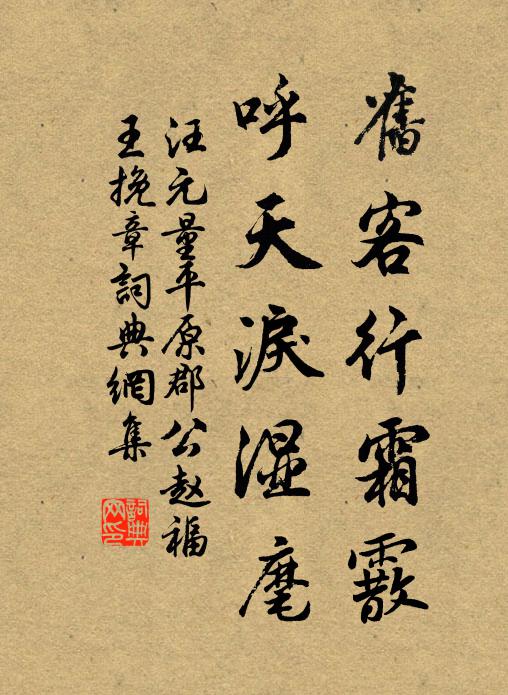 舊客行霜霰
呼天淚湿麾
汪元量平原郡公赵福
王挽章詞典網集
詞典
网印